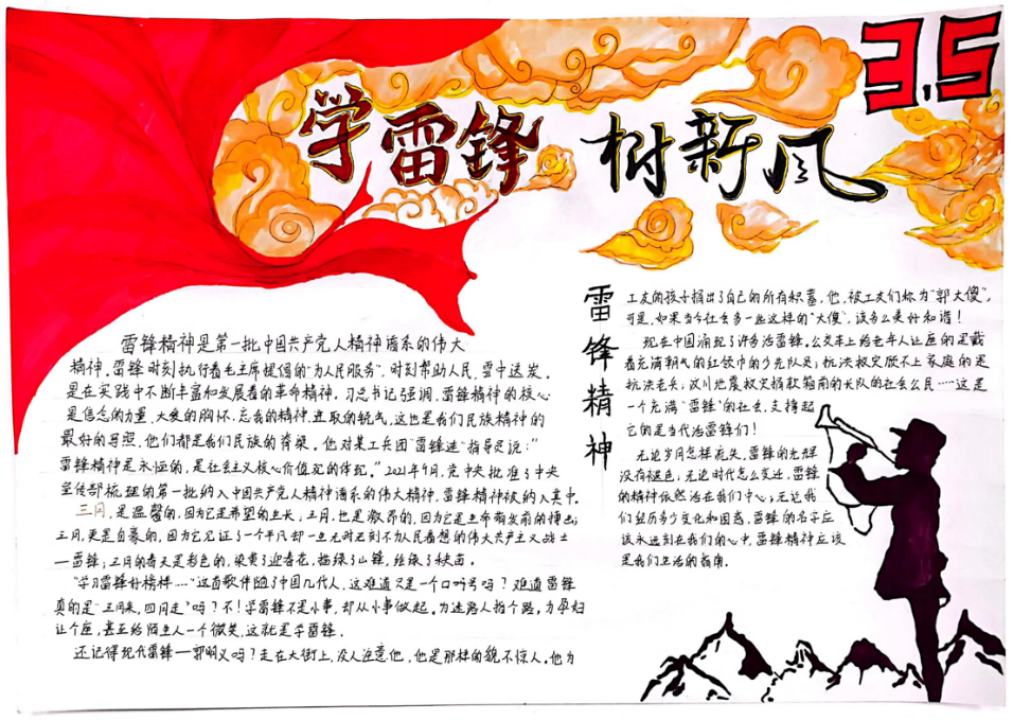 3.5
学雷锋 树新风
雷锋精神是第一批中国共产党人精神谱系的伟大
精神，雷锋时刻执行着毛主席提倡的“为人民服务”，时刻帮助人民，雪中送炭。
是在实践中不断丰富和发展着的革命精神，习总书记强调，雷锋精神的核心
是信念的力量、大爱的胸怀、忘我的精神、进取的锐气，这也是我们民族精神的
最好的写照，他们都是我们民族的脊梁。他对某工兵团“雷锋连”指导员说：“
雷锋精神是永恒的，是社会主义核心价值观的体现。”2021年9月，党中央批准了中央
宣传部梳理的第一批纳入中国共产党人精神谱系的伟大精神，雷锋精神被纳入其中。
三月，是温馨的，因为它是希望的生长；三月，也是激昂的，因为它是生命萌发前的搏击；
三月，更是自豪的，因为它见证了一个平凡却一生无时无刻不为人民着想的伟大共产主义战士
—雷锋；三月的春天是彩色的，染黄了迎春花，描绿了山锋，绘绿了秧苗。
“学习雷锋好榜样……”这首歌伴随了中国几代人，这难道只是一个口号吗？难道雷锋
真的是“三月来，四月走”吗？不！学雷锋不是小事，却从小事做起，为迷路人指个路，为孕妇
让个座，甚至给陌生人一个微笑，这就是学雷锋．
还记得现代雷锋—郭明义吗？走在大街上，没人注意他，他是那样的貌不惊人，他为
雷锋精神
工友的孩子捐出了自己的所有积蓄，他，被工友们称为“郭大傻”，
可是，如果当今社会多一些这样的“大傻”，该多么美好和谐！
现在中国涌现了许多活雷锋。公交车上给老年人让座的是戴
着充满朝气的红领巾的少先队员；抗洪救灾顾不上家庭的是
抗洪老兵；汶川地震救灾捐款箱前的长队的社会公民……这是
一个充满“雷锋”的社会，支撑起
它的是当代活雷锋们！
无论岁月怎样流失，雷锋的光辉
没有褪色；无论时代怎么变迁，雷锋
的精神依然活在我们中心；无论我
们经历多少变化和困惑，雷锋的名字应
该永远刻在我们的心中，雷锋精神应该
是我们生活的指南。